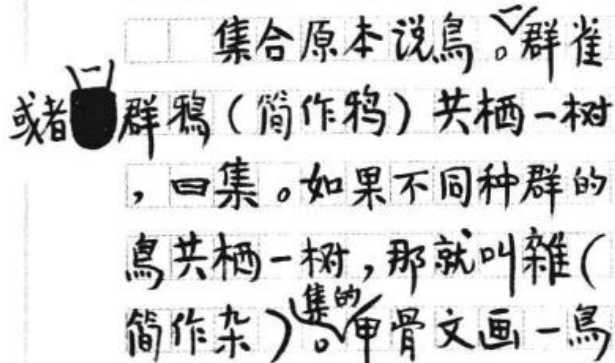 集合原本说鳥。一群雀
或者一群鴉（简作鸦）共栖一树
，曰集。如果不同种群的
鳥共栖一树，那就叫雜（
简作杂）。集的甲骨文画一鳥